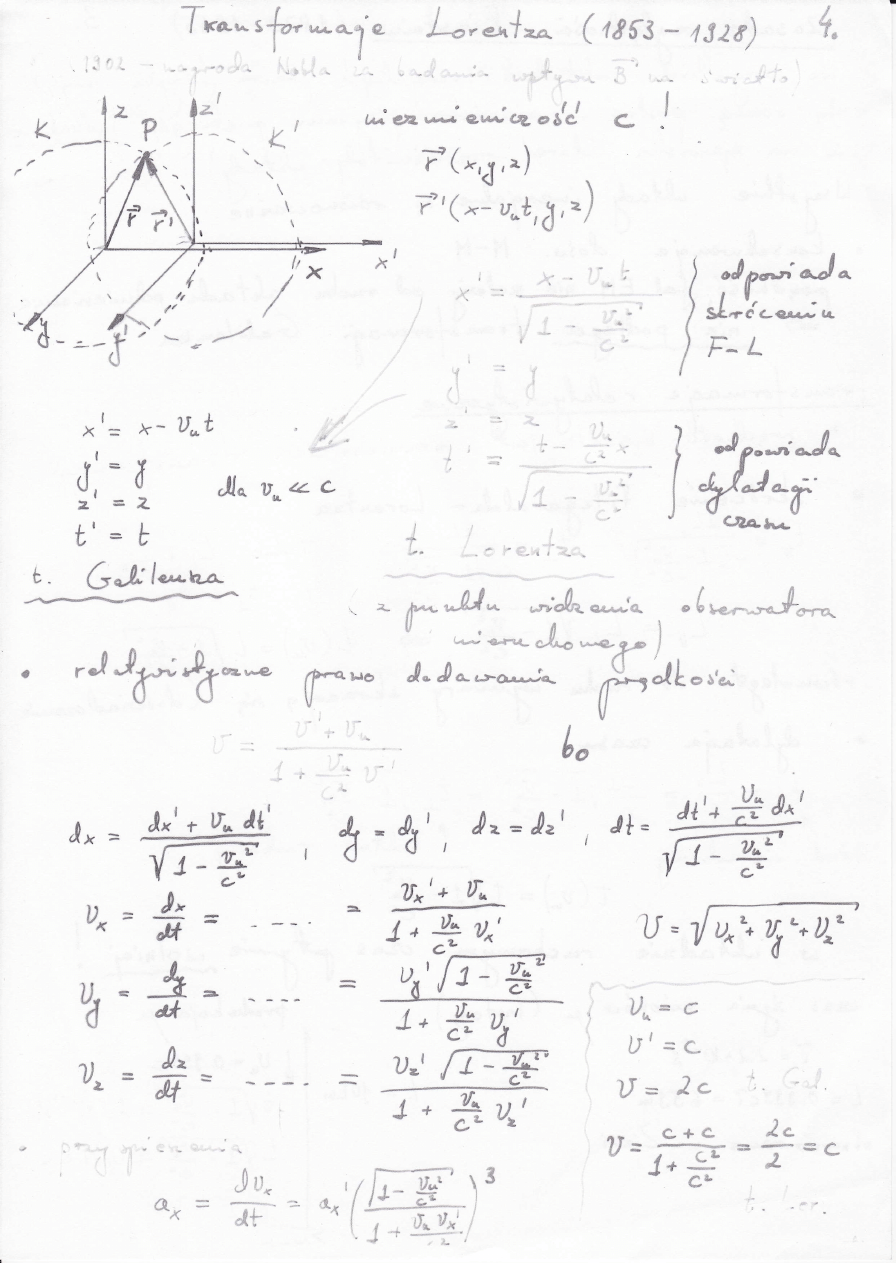 Transformacje Lorentza (1853 - 1928) 4.
(1902 - nagroda Nobla za badania wpływu B⃗ na światło)
K P z z' K'
r⃗ r⃗'
x x'
y y'
niezmienniczość c !
r⃗ (x, y, z)
r⃗ ' (x - vᵤt, y, z)
x' = (x - vᵤt) / √(1 - vᵤ²/c²) } odpowiada skróceniu F-L
y' = y
z' = z
t' = (t - (vᵤ/c²) x) / √(1 - vᵤ²/c²) } odpowiada dylatacji czasu
t. Lorentza
x' = x - vᵤt
y' = y
z' = z
t' = t
dla vᵤ ≪ c
t. Galileusza
(z punktu widzenia obserwatora
nieruchomego)
• relatywistyczne prawo dodawania prędkości
v = (v' + vᵤ) / (1 + (vᵤ/c²) v')
bo
dx = (dx' + vᵤ dt') / √(1 - vᵤ²/c²) , dy = dy' , dz = dz' , dt = (dt' + (vᵤ/c²) dx') / √(1 - vᵤ²/c²)
vₓ = dx/dt = .... = (vₓ' + vᵤ) / (1 + (vᵤ/c²) vₓ')
v = √(vₓ² + v_y² + v_z²)
v_y = dy/dt = .... = v_y' √(1 - vᵤ²/c²) / (1 + (vᵤ/c²) v_y')
v_z = dz/dt = .... = v_z' √(1 - vᵤ²/c²) / (1 + (vᵤ/c²) v_z')
vᵤ = c
v' = c
v = 2c t. Gal.
v = (c + c) / (1 + c²/c²) = 2c/2 = c
t. Lor.
• przyspieszenia
aₓ = dvₓ/dt = aₓ' (√(1 - vᵤ²/c²) / (1 + vᵤ vₓ'/c²))³